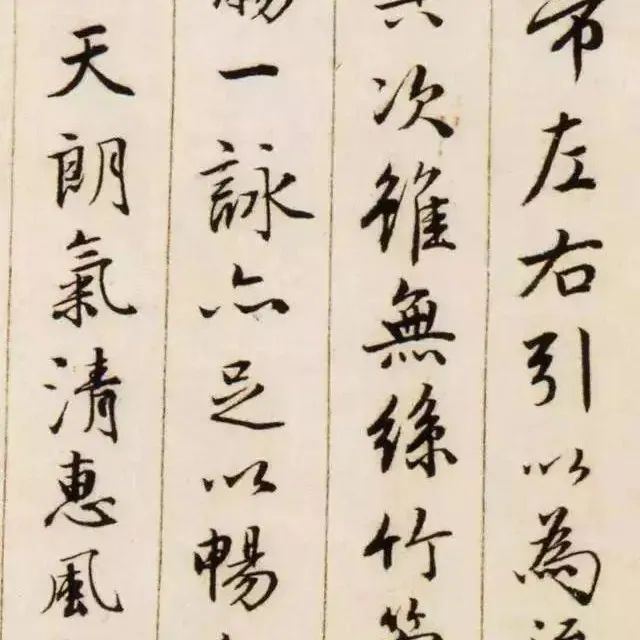 帶左右引以為流
其次雖無絲竹管
觴一詠亦足以暢
天朗氣清惠風